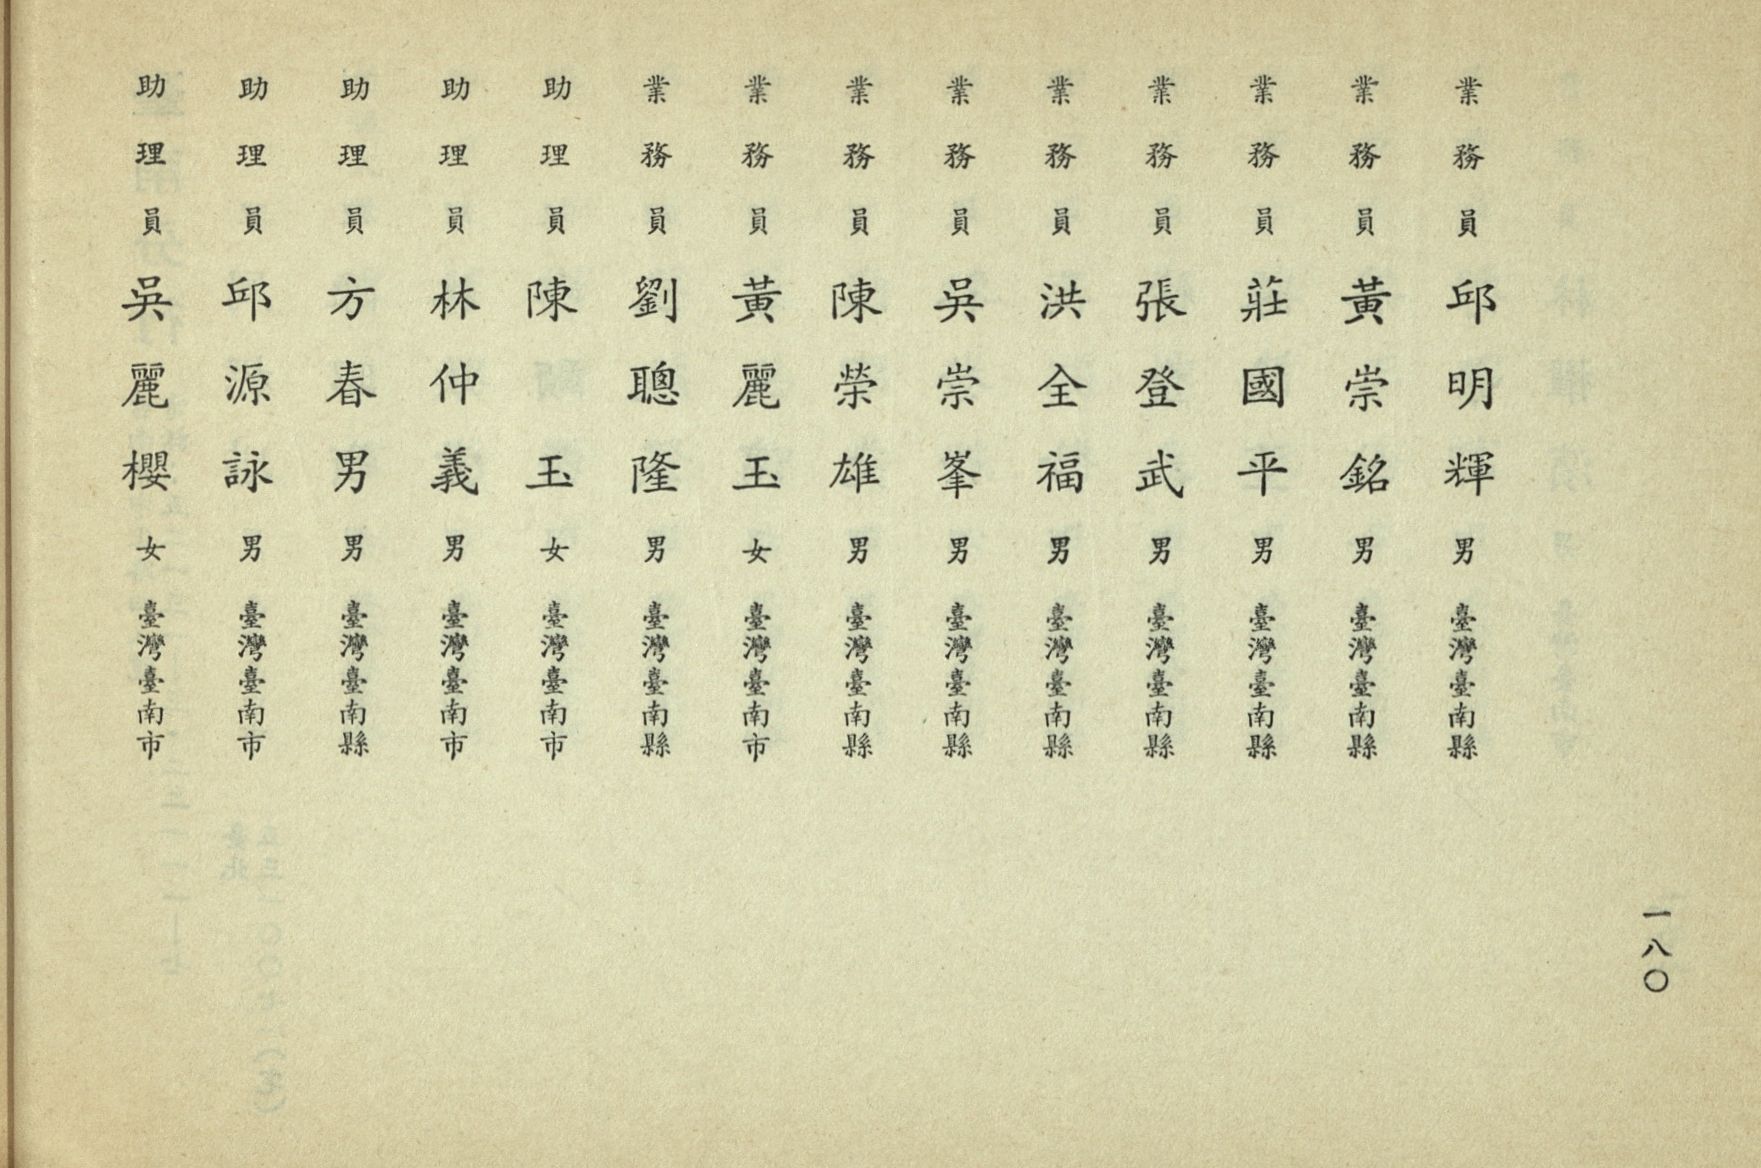 一八〇
業務員邱明輝男臺灣臺南縣
業務員黃崇銘男臺灣臺南縣
業務員莊國平男臺灣臺南縣
業務員張登武男臺灣臺南縣
業務員洪全福男臺灣臺南縣
業務員吳崇峯男臺灣臺南縣
業務員陳榮雄男臺灣臺南縣
業務員黃麗玉女臺灣臺南市
業務員劉聰隆男臺灣臺南縣
助理員陳玉女臺灣臺南市
助理員林仲義男臺灣臺南市
助理員方春男男臺灣臺南縣
助理員邱源詠男臺灣臺南市
助理員吳麗櫻女臺灣臺南市